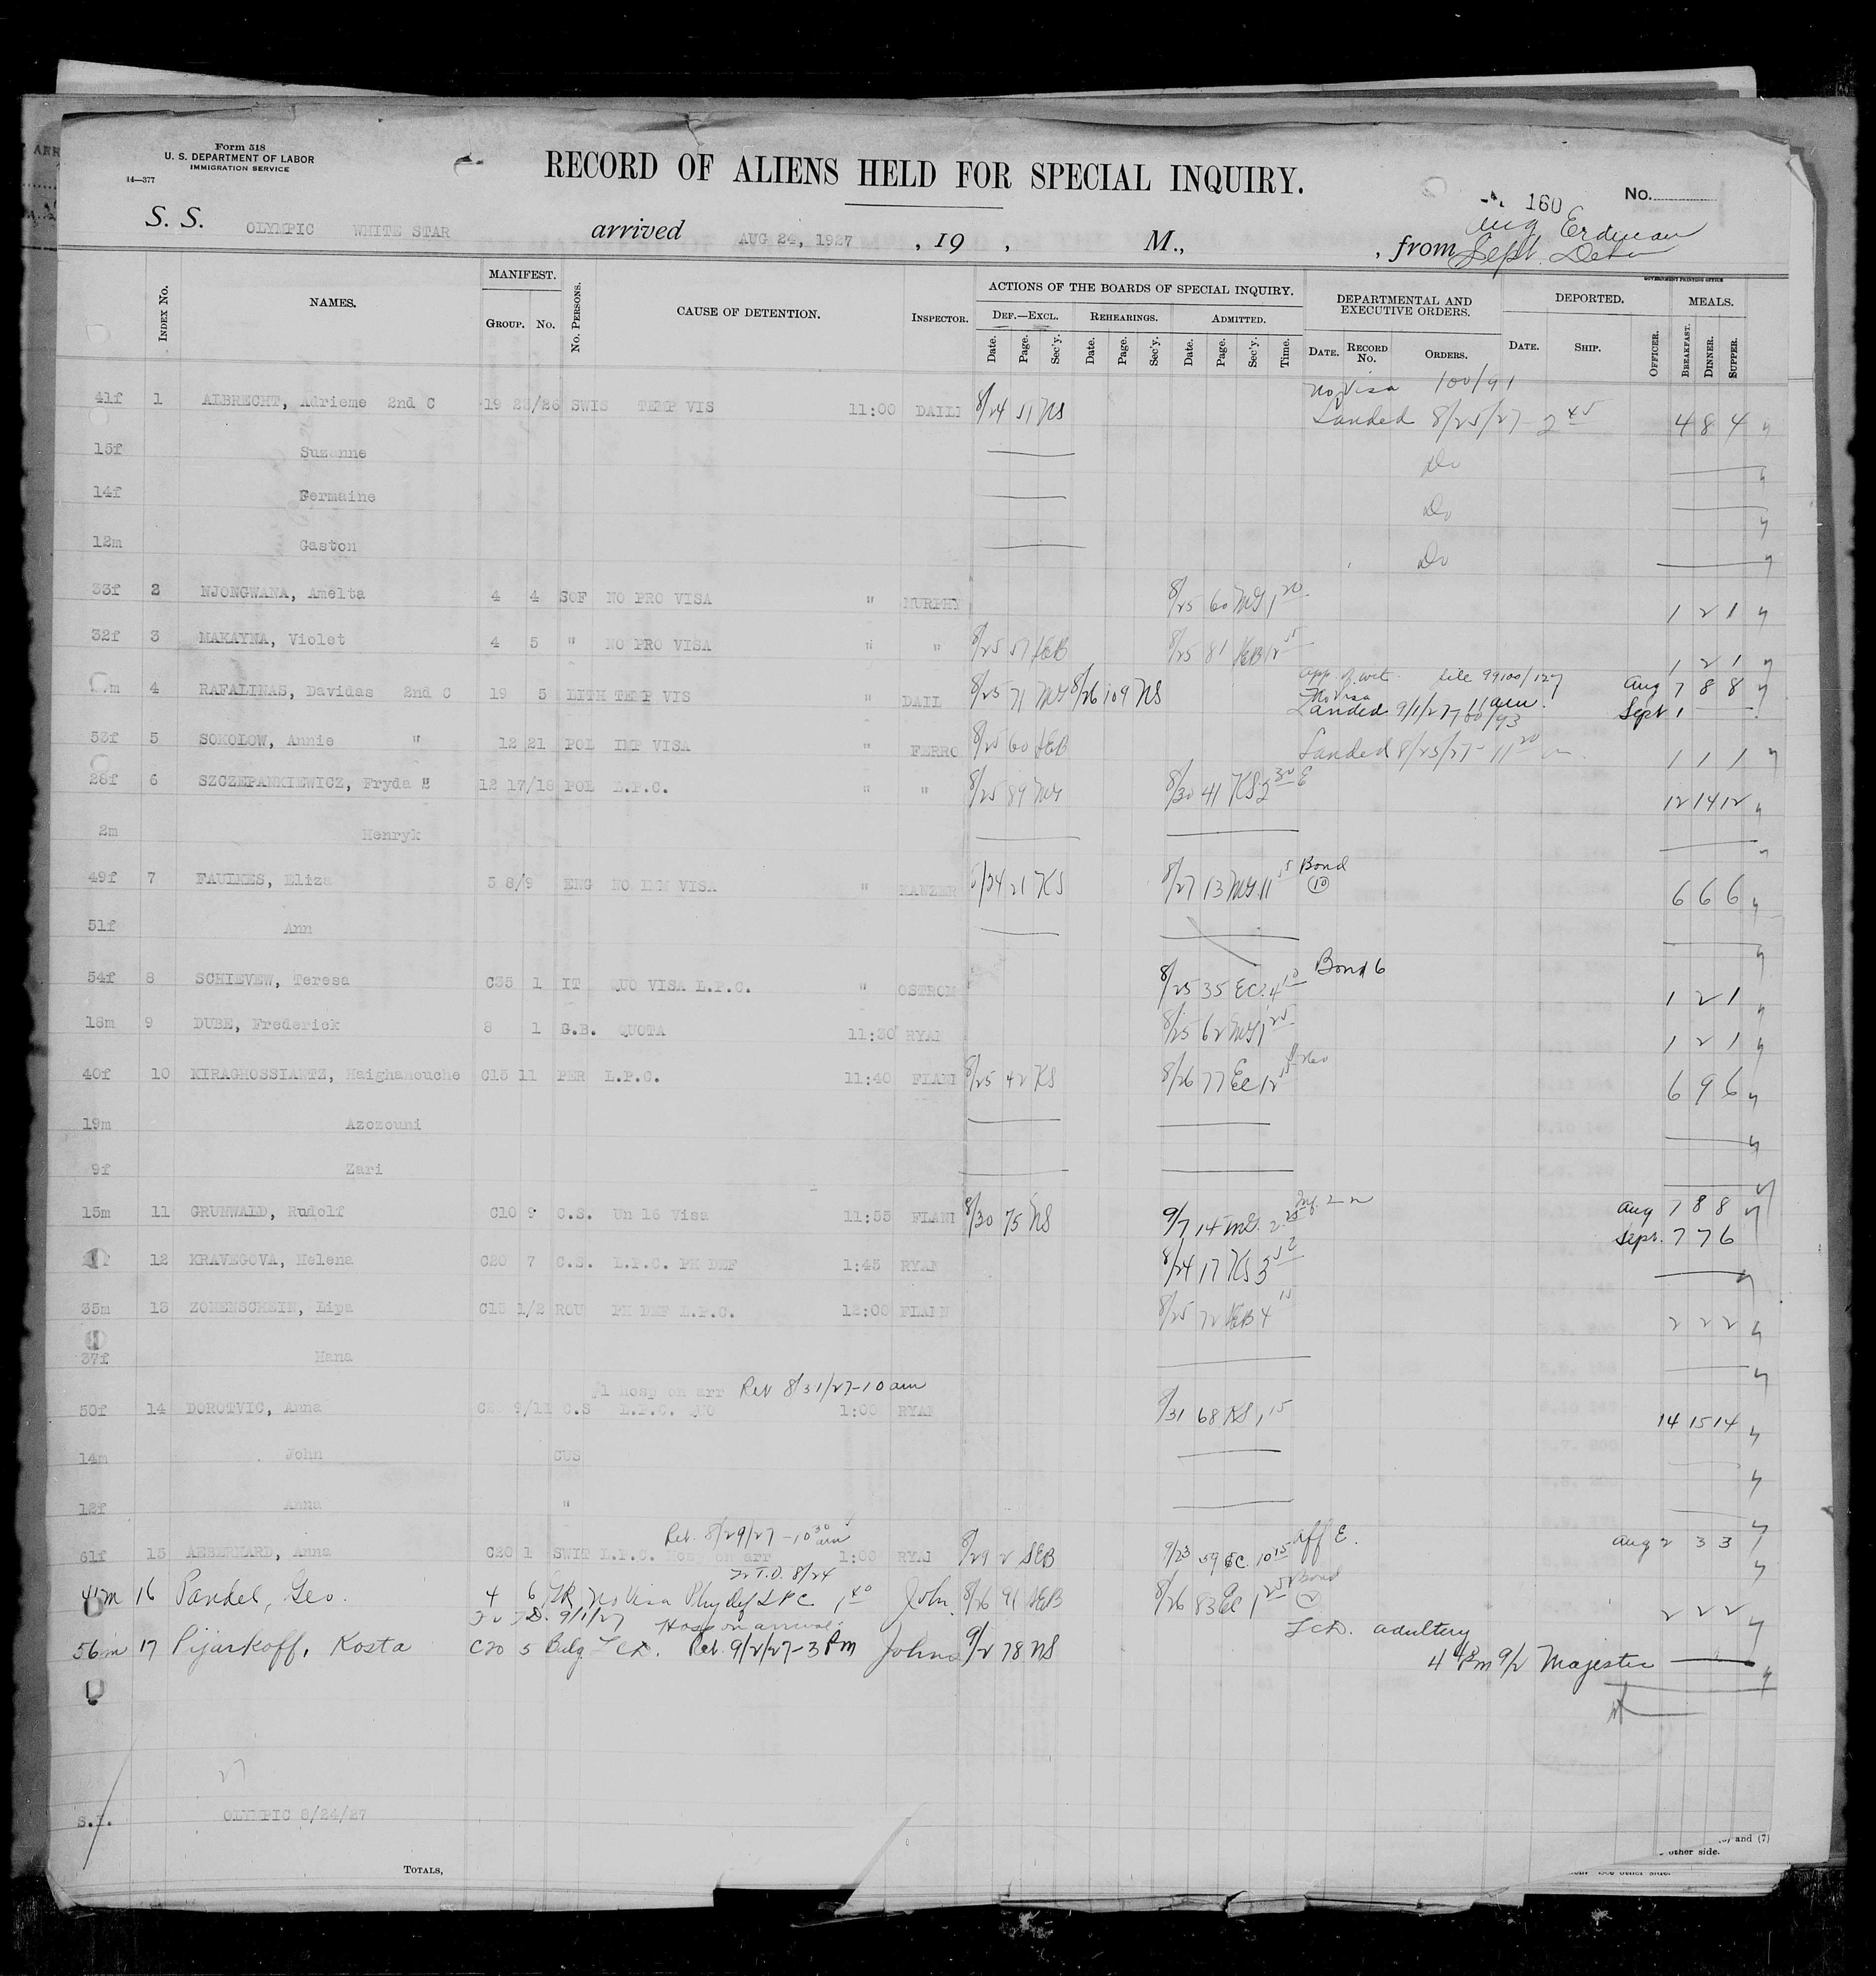 Form 518
U. S. DEPARTMENT OF LABOR
IMMIGRATION SERVICE
14—377
RECORD OF ALIENS HELD FOR SPECIAL INQUIRY.
160
No.
S. S. OLYMPIC WHITE STAR arrived AUG 24, 1927, 19 , M., , from
Aug Erdman
Sept.
GOVERNMENT PRINTING OFFICE
INDEX NO. NAMES. MANIFEST. GROUP. NO. NO. PERSONS. CAUSE OF DETENTION. INSPECTOR. ACTIONS OF THE BOARDS OF SPECIAL INQUIRY. DEF.—EXCL. REHEARINGS. ADMITTED. DEPARTMENTAL AND EXECUTIVE ORDERS. DEPORTED. MEALS.
Date. Page. Sec'y. Date. Page. Sec'y. Date. Page. Sec'y. Time. DATE. RECORD NO. ORDERS. DATE. SHIP. OFFICER. BREAKFAST. DINNER. SUPPER.
No Visa 100/91
41f 1 ALBRECHT, Adrieme 2nd C 19 23/26 SWIS TEMP VIS 11:00 DAILI 8/24 51 NS Landed 8/25/27 2 45 4 8 4
15f Suzanne Do
14f Germaine Do
12m Gaston Do
33f 2 NJONGWANA, Amelta 4 4 SOF NO PRO VISA " MURPHY 8/25 60 MG 1 20 1 2 1
32f 3 MAKAYNA, Violet 4 5 " NO PRO VISA " " 8/25 57 SEB 8/25 81 SEB 12 55 1 2 1
app. of wit. tele 99100/127
m 4 RAFALINAS, Davidas 2nd C 19 5 LITH TEMP VIS " DAIL 8/25 71 MG 8/26 109 NS No Visa Aug 7 8 8
Landed 9/1/27 11 am. 100/93 Sept 1
53f 5 SOKOLOW, Annie " 12 21 POL IMP VISA " FERRO 8/25 60 SEB Landed 8/25/27 - 11 20 1 1 1
28f 6 SZCZEPANKIEWICZ, Fryda " 12 17/18 POL L.P.C. " " 8/25 89 MG 8/30 41 KS 2 30 E 12 14 12
2m Henryk
49f 7 FAULKES, Eliza 5 8/9 ENG NO IMM VISA " MANZER 8/24 21 KS 8/27 13 MG 11 5 Bond 10 6 6 6
51f Ann
54f 8 SCHIEVEW, Teresa C35 1 IT QUO VISA L.P.C. " OSTROM 8/25 35 EC. 4 Bond 6 1 2 1
18m 9 DUBE, Frederick 8 1 G.B. QUOTA 11:30 RYAN 8/25 62 MG 1 25 1 2 1
40f 10 KIRAGHOSSIANTZ, Haighanouche C15 11 PER L.P.C. 11:40 FLANI 8/25 42 KS 8/26 77 EC 12 6 9 6
19m Azozouni
9f Zari
15m 11 GRUNWALD, Rudolf C10 9 C.S. Un 16 Visa 11:55 FLANI 8/30 75 NS 9/7 14 MG. 2 25 Aug 7 8 8
Sept. 7 7 6
12 KRAVEGOVA, Helena C20 7 C.S. L.P.C. PH DEF 1:45 RYAN 8/24 17 KS 3
35m 13 ZONENSCHEIN, Lipa C15 1/2 ROU PH DEF L.P.C. 12:00 FLANN 8/25 72 SEB 4 15 2 2 2
37f Hana
1 hosp on arr Rel 8/31/27-10 am
50f 14 DOROTVIC, Anna 9/11 C.S L.P.C. QUO 1:00 RYAN 8/31 68 KS 1 15 14 15 14
14m John CUS
12f Anna "
Rel. 8/29/27 - 10 30 am
61f 15 AEBERHARD, Anna C20 1 SWIT L.P.C. Hosp on arr 1:00 RYAN 8/29 2 SEB 9/23 59 EC. 10 15 aff E. Aug 2 3 3
T.D. 8/24
41m 16 Pandel, Geo. 4 6 GR No Visa Phy def LPC 1 40 John. 8/26 91 SEB 8/26 83 EC 1 25 Bond 2 2 2 2
9/1/27 Hosp on arrival LCD. adultery
56m 17 Pijarkoff, Kosta C20 5 Bulg LCD. Rel. 9/2/27-3 Pm Johns 9/2 78 NS 4 pm 9/2 Majestic
27
S.I. OLYMPIC 8/24/27
and (7)
other side.
TOTALS,